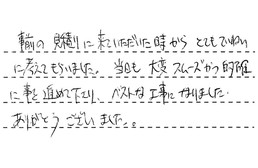 事前の見積りに来ていただいた時から とてもていねい
に考えてもらいました。当日も 大変 スムーズかつ的確
に事を進めて下さり、ベストな工事になりました。
ありがとうございました。